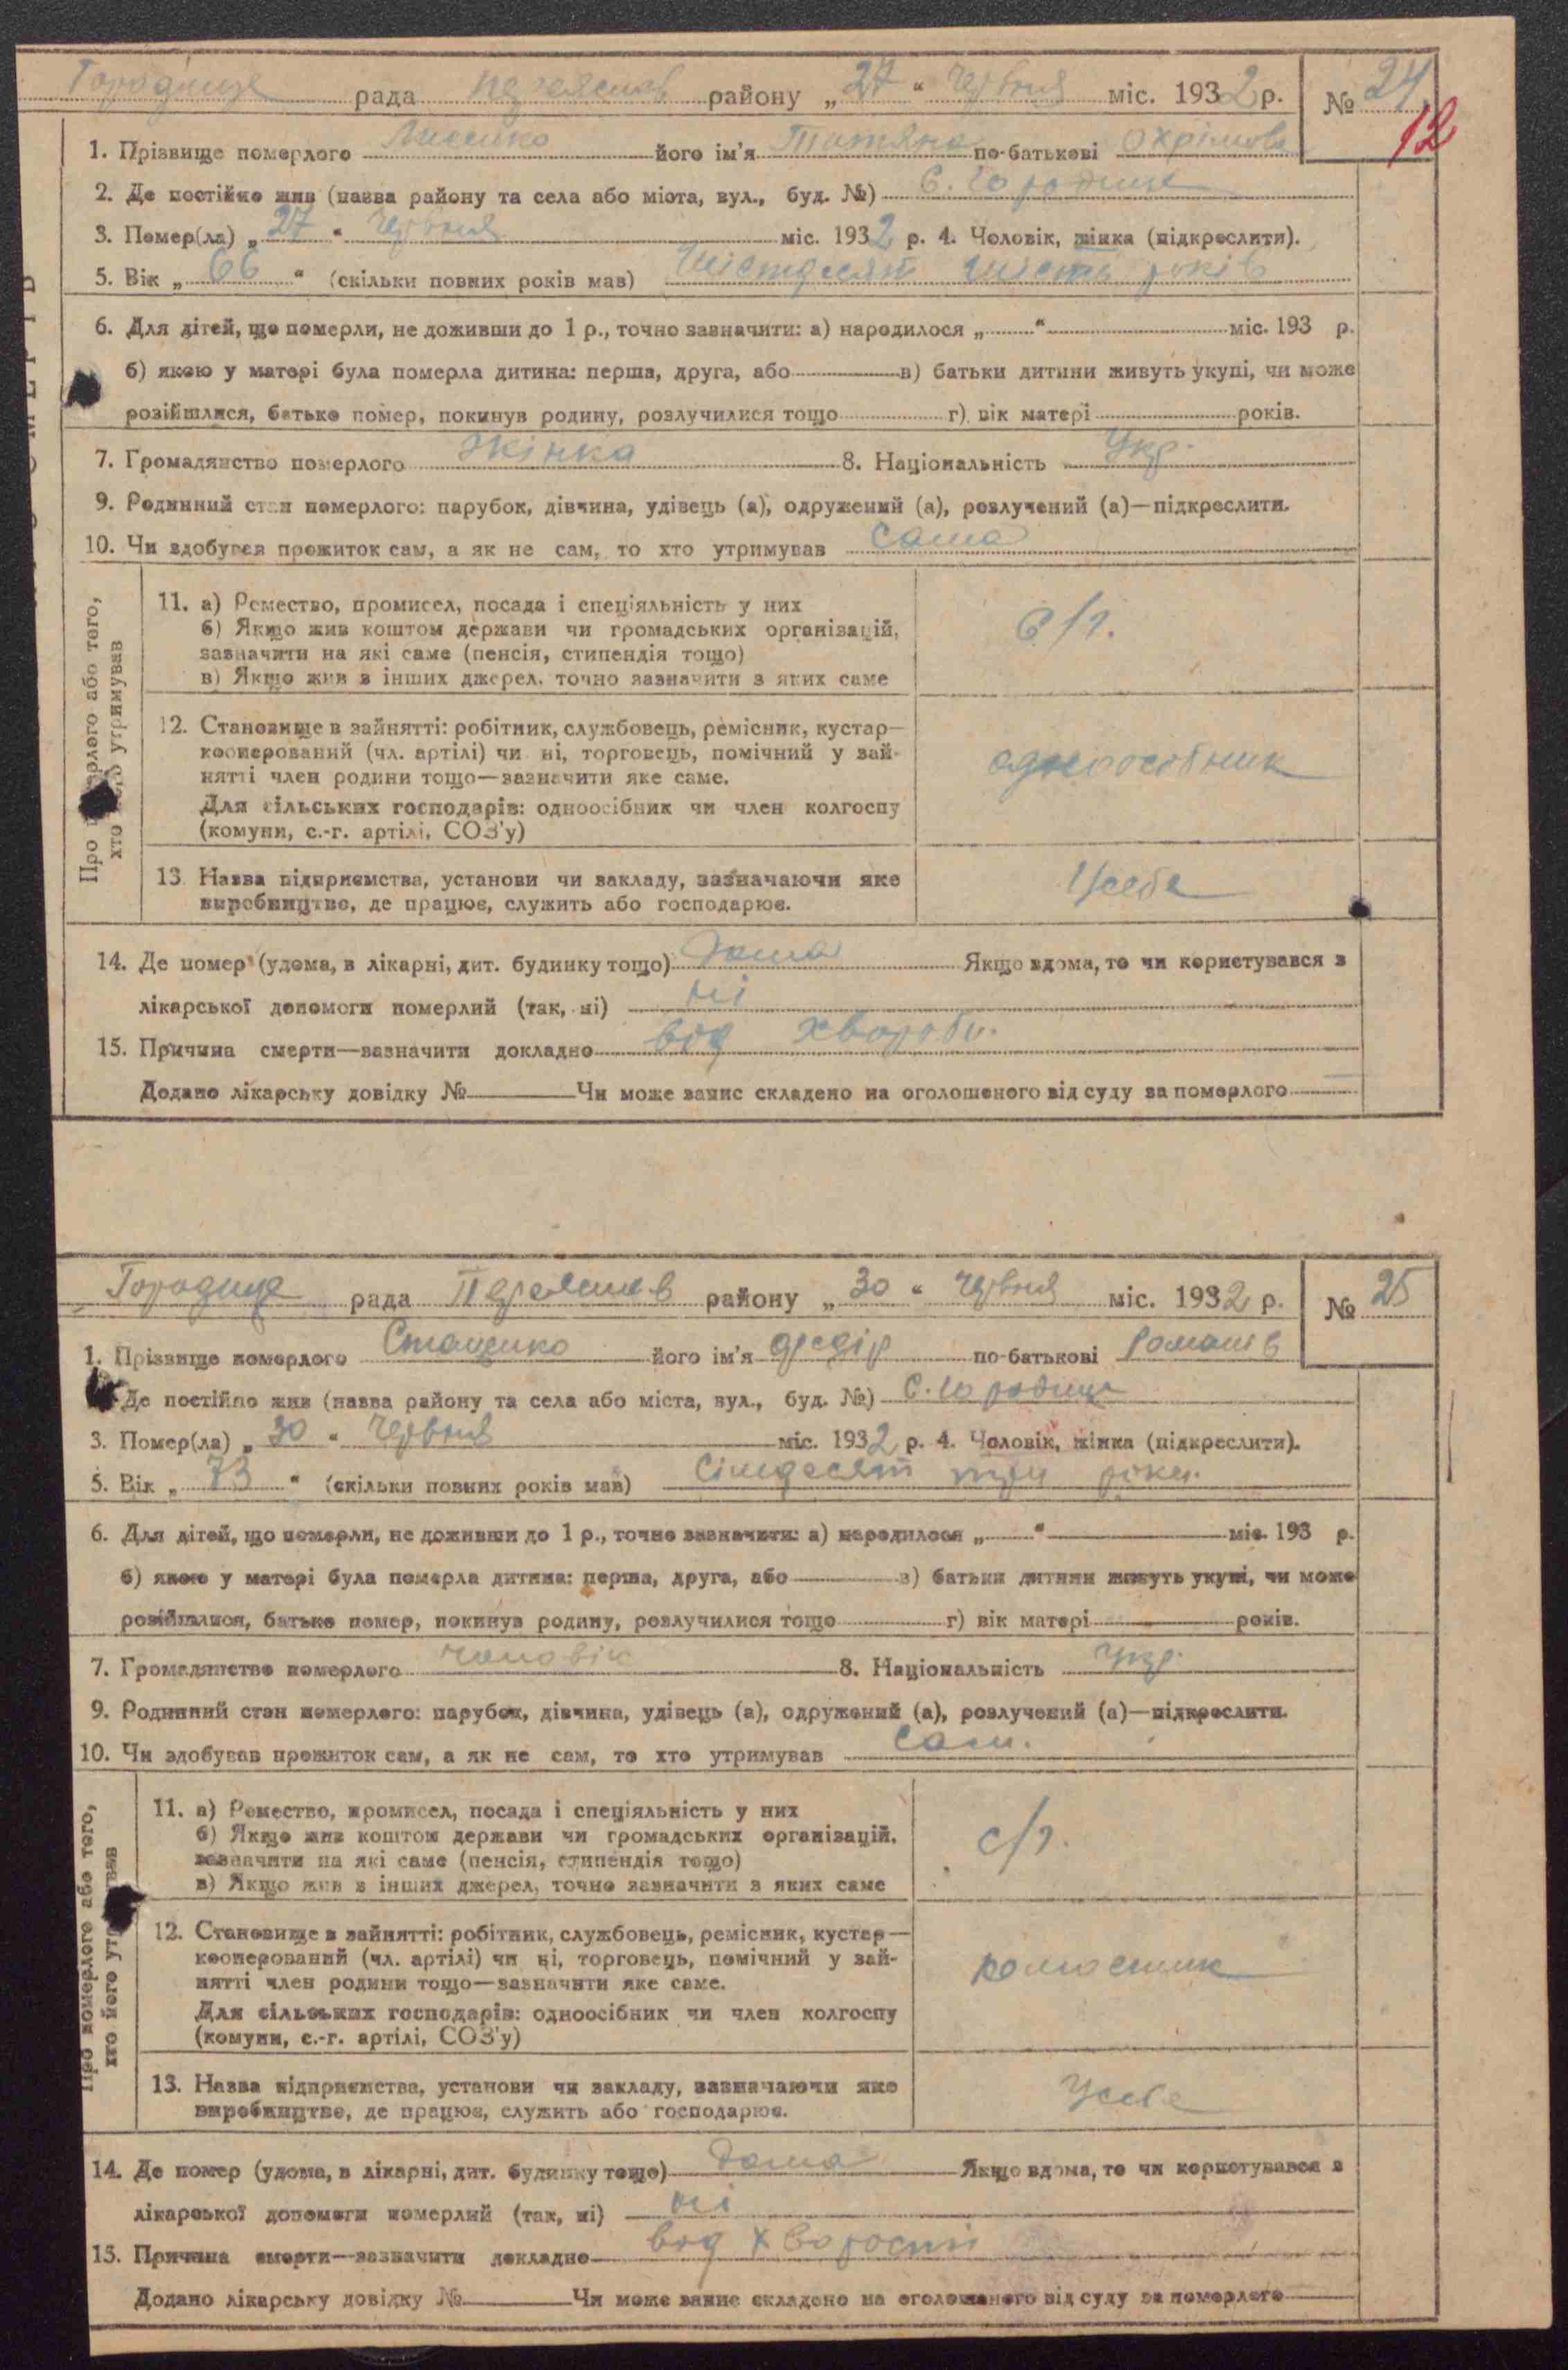 Городище рада Переяслав району „27“ червня міс. 1932 р. № 24
12
1. Прізвище померлого його ім'я Титяна по-батькові Охрімова
2. Де постійно жив (назва району та села або міста, вул., буд. №) С. Городище
3. Помер(ла) „27“ червня міс. 1932 р. 4. Чоловік, жінка (підкреслити).
5. Вік „66“ (скільки повних років мав) Шістдесят шість років
6. Для дітей, що померли, не доживши до 1 р., точно зазначити: а) народилося „ “ міс. 193 р.
б) якою у матері була померла дитина: перша, друга, або в) батьки дитини живуть укупі, чи може
розійшлися, батько помер, покинув родину, розлучилися тощо г) вік матері років.
7. Громадянство померлого жінка 8. Національність Укр.
9. Родинний стан померлого: парубок, дівчина, удівець (а), одружений (а), розлучений (а)—підкреслити.
10. Чи здобував прожиток сам, а як не сам, то хто утримував сама
Про померлого або того, хто його утримував
11. а) Ремество, промисел, посада і спеціяльність у них
б) Якщо жив коштом держави чи громадських організацій,
зазначити на які саме (пенсія, стипендія тощо)
в) Якщо жив з інших джерел, точно зазначити з яких саме
с/г.
12. Становище в зайнятті: робітник, службовець, ремісник, кустар—
кооперований (чл. артілі) чи ні, торговець, помічний у зай-
нятті член родини тощо—зазначити яке саме.
Для сільських господарів: одноосібник чи член колгоспу
(комуни, с.-г. артілі, СОЗ'у)
одноособник
13. Назва підприємства, установи чи закладу, зазначаючи яке
виробництво, де працює, служить або господарює.
Усебе
14. Де помер (удома, в лікарні, дит. будинку тощо) дома Якщо вдома, то чи користувався з
лікарської допомоги померлий (так, ні) ні
15. Причина смерти—зазначити докладно від хвороби.
Додано лікарську довідку № Чи може запис складено на оголошеного від суду за померлого
Городище рада Переяслав району „30“ червня міс. 1932 р. № 25
1. Прізвище померлого Стаценко його ім'я Федір по-батькові Романів
Де постійно жив (назва району та села або міста, вул., буд. №) С. Городище
3. Помер(ла) „30“ червня міс. 1932 р. 4. Чоловік, жінка (підкреслити).
5. Вік „73“ (скільки повних років мав) Сімдесят три роки.
6. Для дітей, що померли, не доживши до 1 р., точно зазначити: а) народилося „ “ міс. 193 р.
б) якою у матері була померла дитина: перша, друга, або в) батьки дитини живуть укупі, чи може
розійшлися, батько помер, покинув родину, розлучилися тощо г) вік матері років.
7. Громадянство померлого чоловік 8. Національність Укр.
9. Родинний стан померлого: парубок, дівчина, удівець (а), одружений (а), розлучений (а)—підкреслити.
10. Чи здобував прожиток сам, а як не сам, то хто утримував Сам.
Про померлого або того, хто його утримував
11. а) Ремество, промисел, посада і спеціяльність у них
б) Якщо жив коштом держави чи громадських організацій,
зазначити на які саме (пенсія, стипендія тощо)
в) Якщо жив з інших джерел, точно зазначити з яких саме
с/г.
12. Становище в зайнятті: робітник, службовець, ремісник, кустар—
кооперований (чл. артілі) чи ні, торговець, помічний у зай-
нятті член родини тощо—зазначити яке саме.
Для сільських господарів: одноосібник чи член колгоспу
(комуни, с.-г. артілі, СОЗ'у)
13. Назва підприємства, установи чи закладу, зазначаючи яке
виробництво, де працює, служить або господарює.
Усебе
14. Де помер (удома, в лікарні, дит. будинку тощо) дома Якщо вдома, то чи користувався з
лікарської допомоги померлий (так, ні) ні
15. Причина смерти—зазначити докладно від хворости
Додано лікарську довідку № Чи може запис складено на оголошеного від суду за померлого